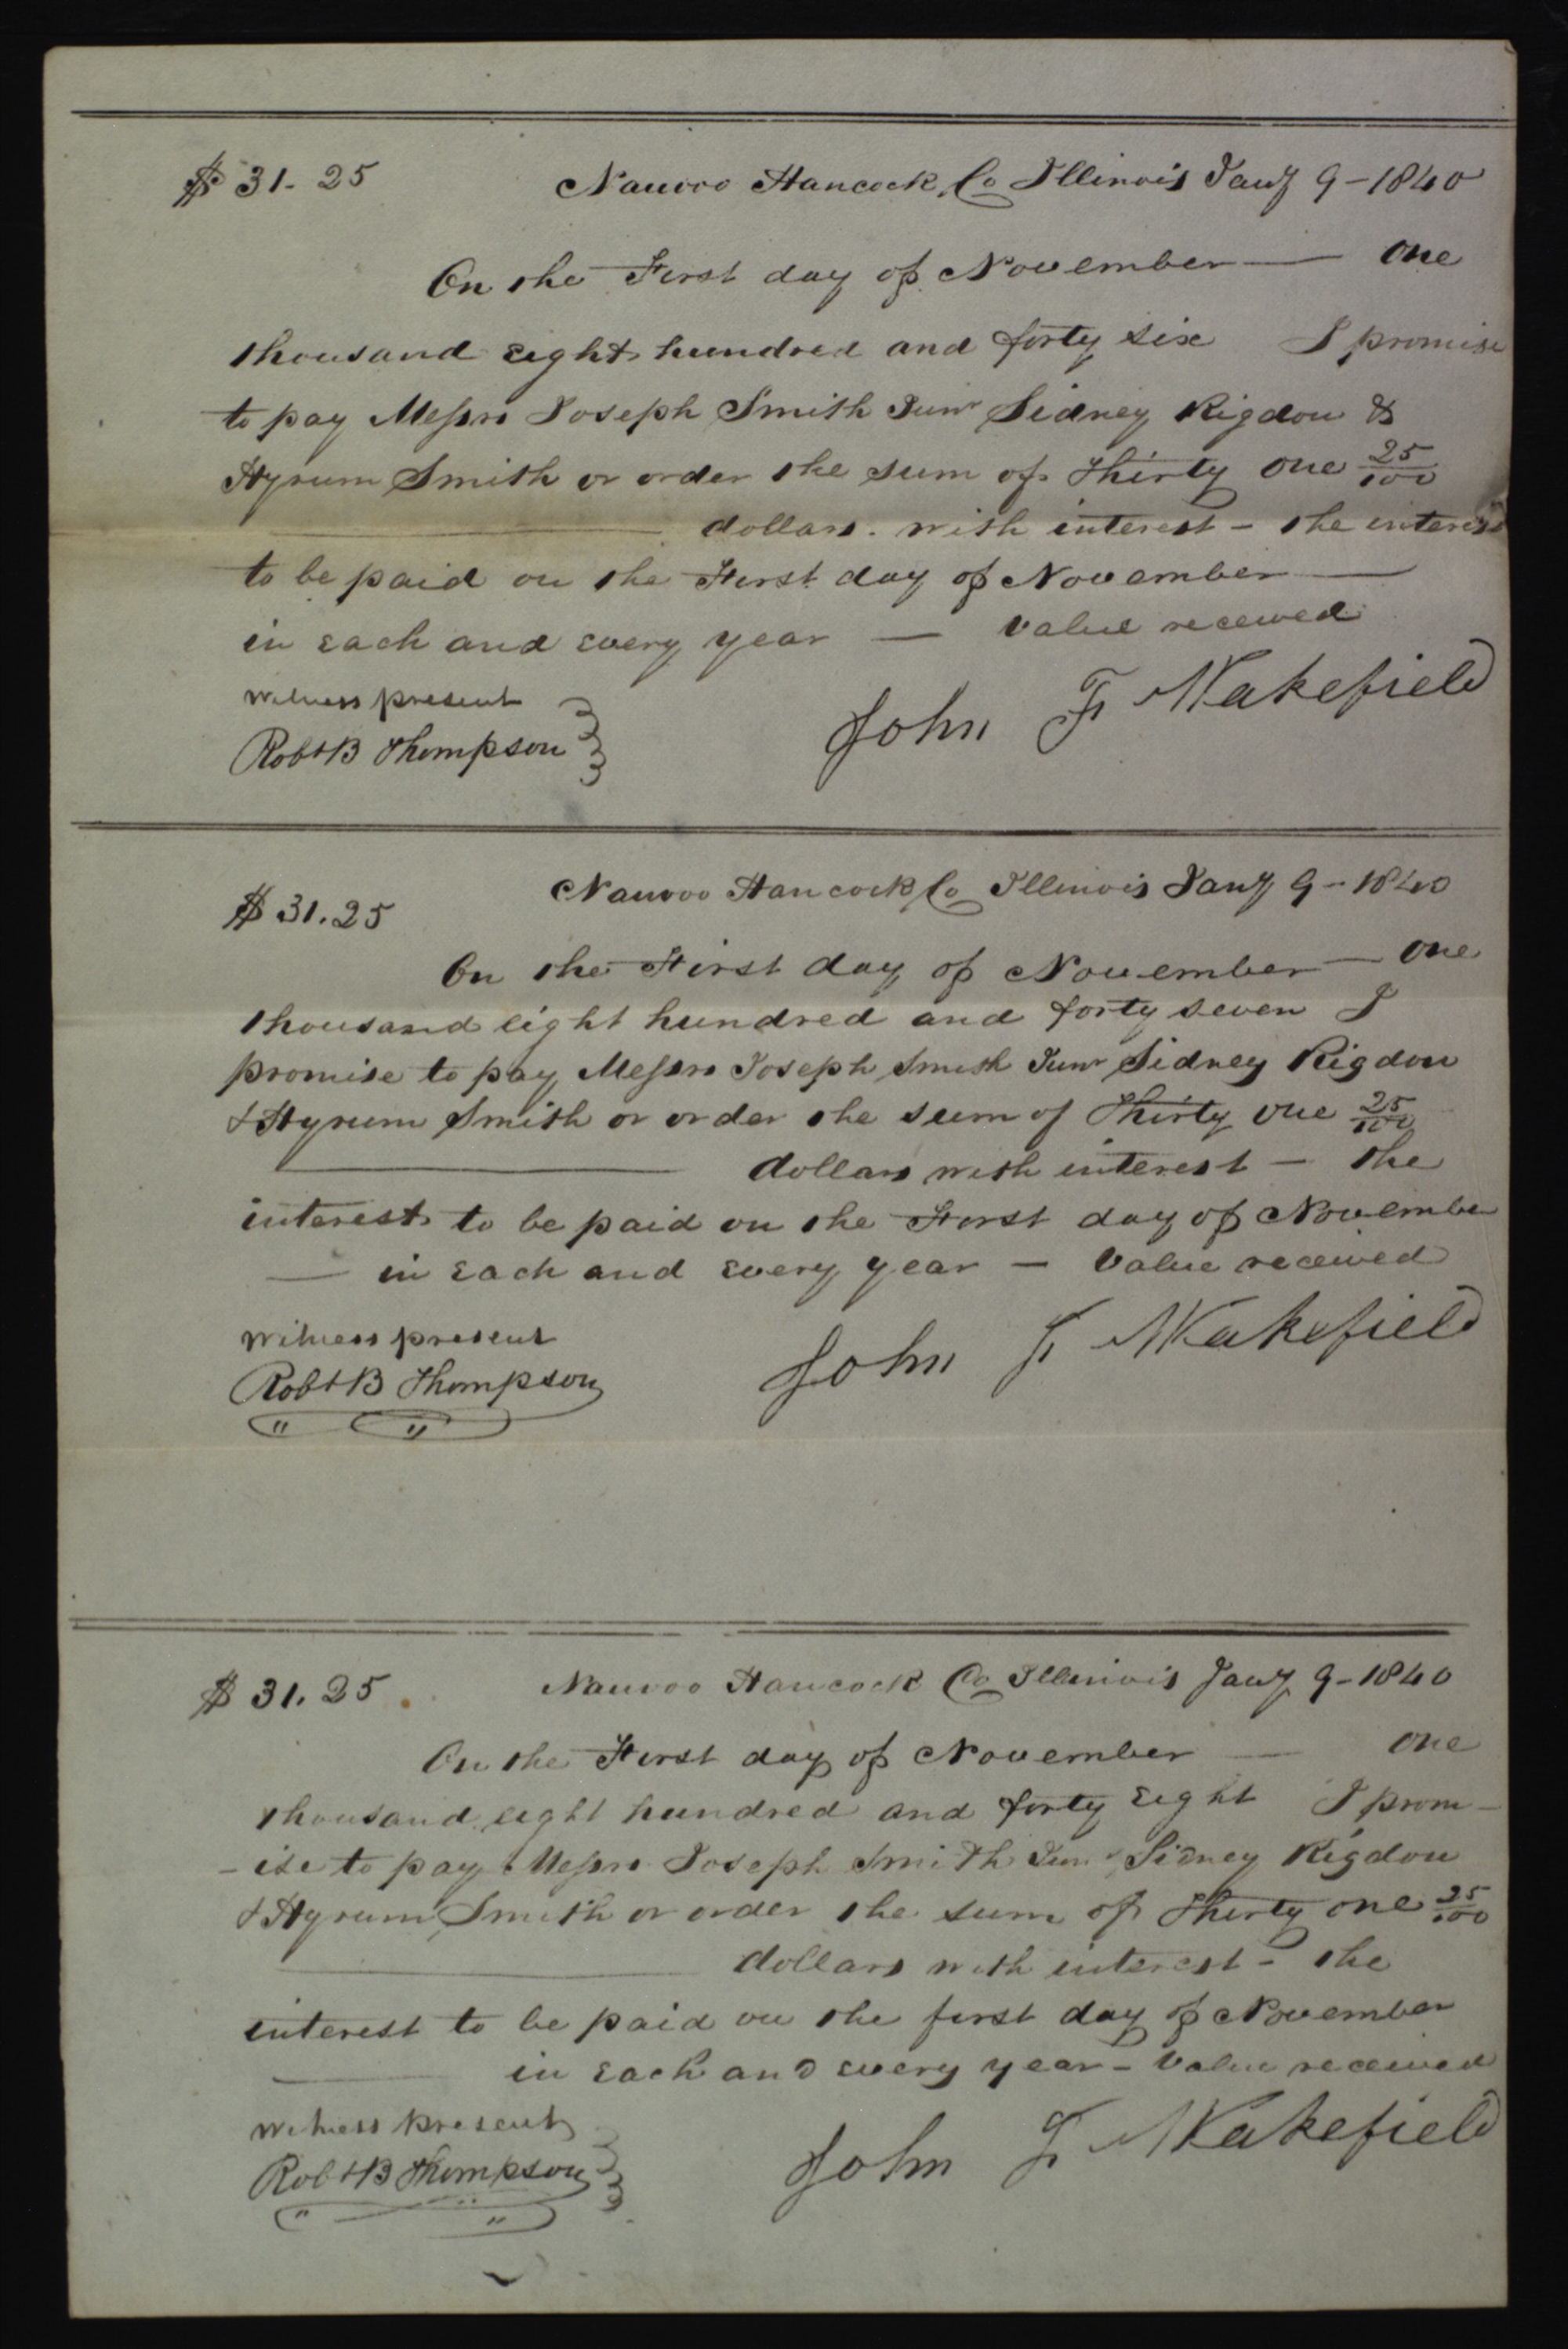 $ 31. 25 Nauvoo Hancock Co Illinois Jany 9 – 1840
On the First day of November — One
thousand eight hundred and forty six I promise
to pay Messrs Joseph Smith Junr Sidney Rigdon &
Hyrum Smith or order the sum of Thirty One 25/100
— dollars. with interest – the interest
to be paid on the First day of November —
in each and every year — Value received
Witness present
Robt B Thompson
John F Wakefield
$ 31.25 Nauvoo Hancock Co Illinois Jany 9 – 1840
On the First day of November — One
thousand eight hundred and forty seven I
promise to pay Messrs Joseph Smith Junr Sidney Rigdon
& Hyrum Smith or order the sum of Thirty one 25/100
— dollars with interest — the
interest to be paid on the First day of November
— in each and every year — Value received
Witness present
Robt B Thompson
John F Wakefield
$ 31.25 Nauvoo Hancock Co Illinois Jany 9 – 1840
On the First day of November — One
thousand eight hundred and forty Eight I prom-
-ise to pay Messrs Joseph Smith Junr Sidney Rigdon
& Hyrum Smith or order the sum of Thirty one 25/100
— dollars with interest – the
interest to be paid on the first day of November
— in each and every year – Value received
Witness present
Robt B Thompson
John F Wakefield